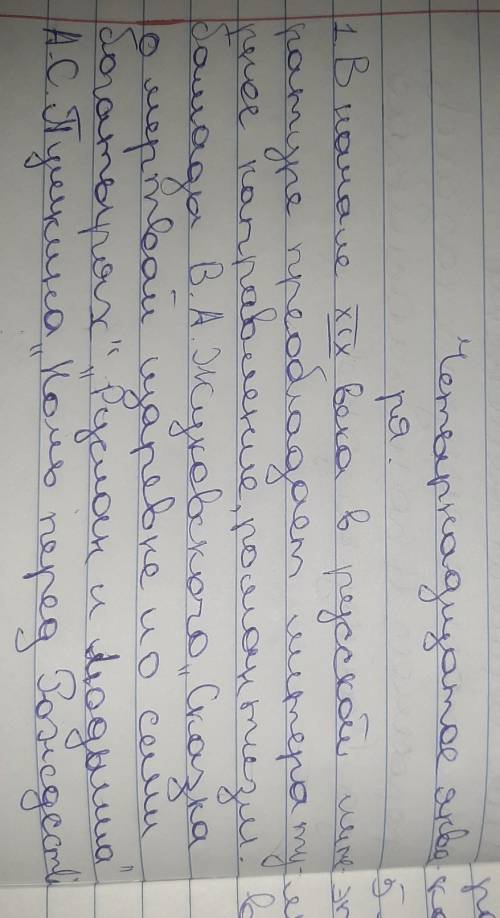 Четырнадцатое янва-
ря.
1. В начале XIX века в русской лите-
ратуре преобладает литерату-
рное направление, романтизм.
баллады В.А. Жуковского, „Сказка
о мертвой царевне и о семи
богатырях", „Руслан и Людмила"
А.С. Пушкина „Ночь перед Рождеств